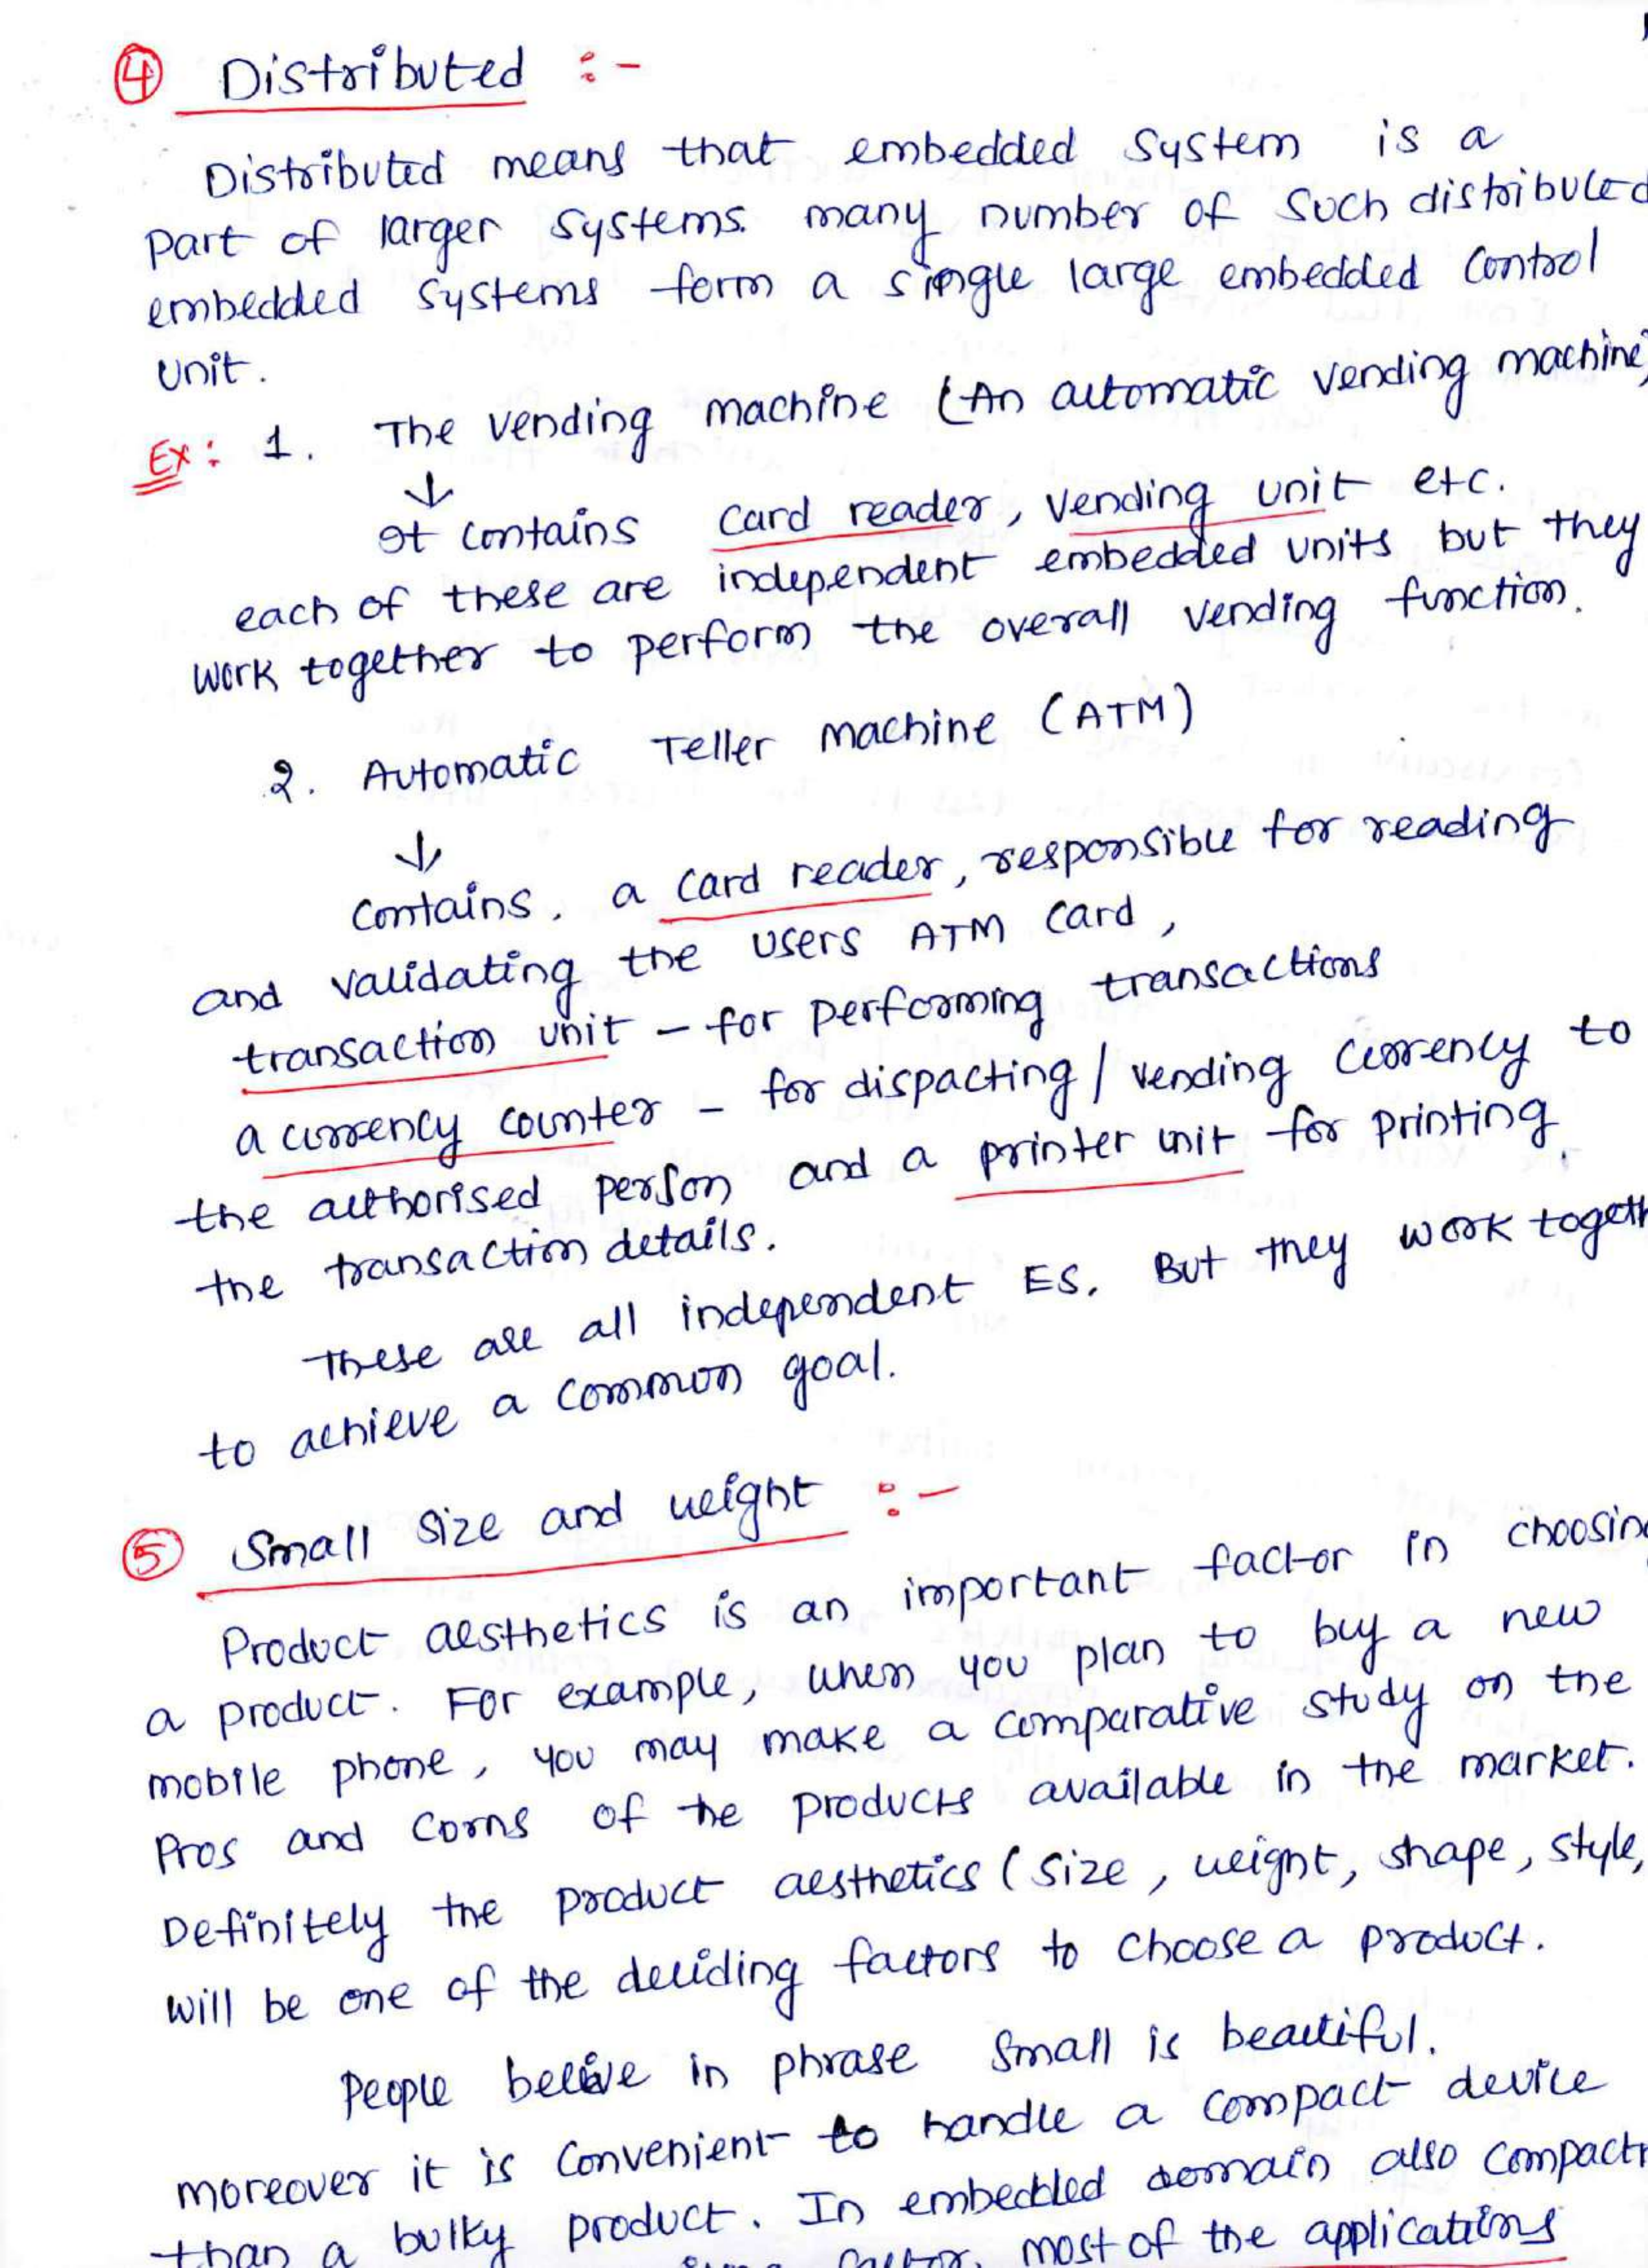 ④ Distributed :-
Distributed means that embedded System is a
part of larger systems. many number of such distributed
embedded systems form a single large embedded control
unit.
Ex: 1. The vending machine (An automatic vending machine)
↓
It contains card reader, vending unit etc.
each of these are independent embedded units but they
work together to perform the overall vending function.
2. Automatic Teller machine (ATM)
↓
Contains, a card reader, responsible for reading
and validating the users ATM card,
transaction unit - for performing transactions
a currency counter - for dispacting / vending currency to
the authorised person and a printer unit for printing
the transaction details.
These are all independent ES. But they work togeth
to achieve a common goal.
⑤ Small size and weight :-
Product aesthetics is an important factor in choosing
a product. For example, when you plan to buy a new
mobile phone, you may make a comparative study on the
Pros and Corns of the products available in the market.
Definitely the product aesthetics (size, weight, shape, style,
will be one of the deciding factors to choose a product.
People belive in phrase Small is beautiful.
moreover it is convenient to handle a compact device
than a bulky product. In embedded domain also compact
factor. most of the applications